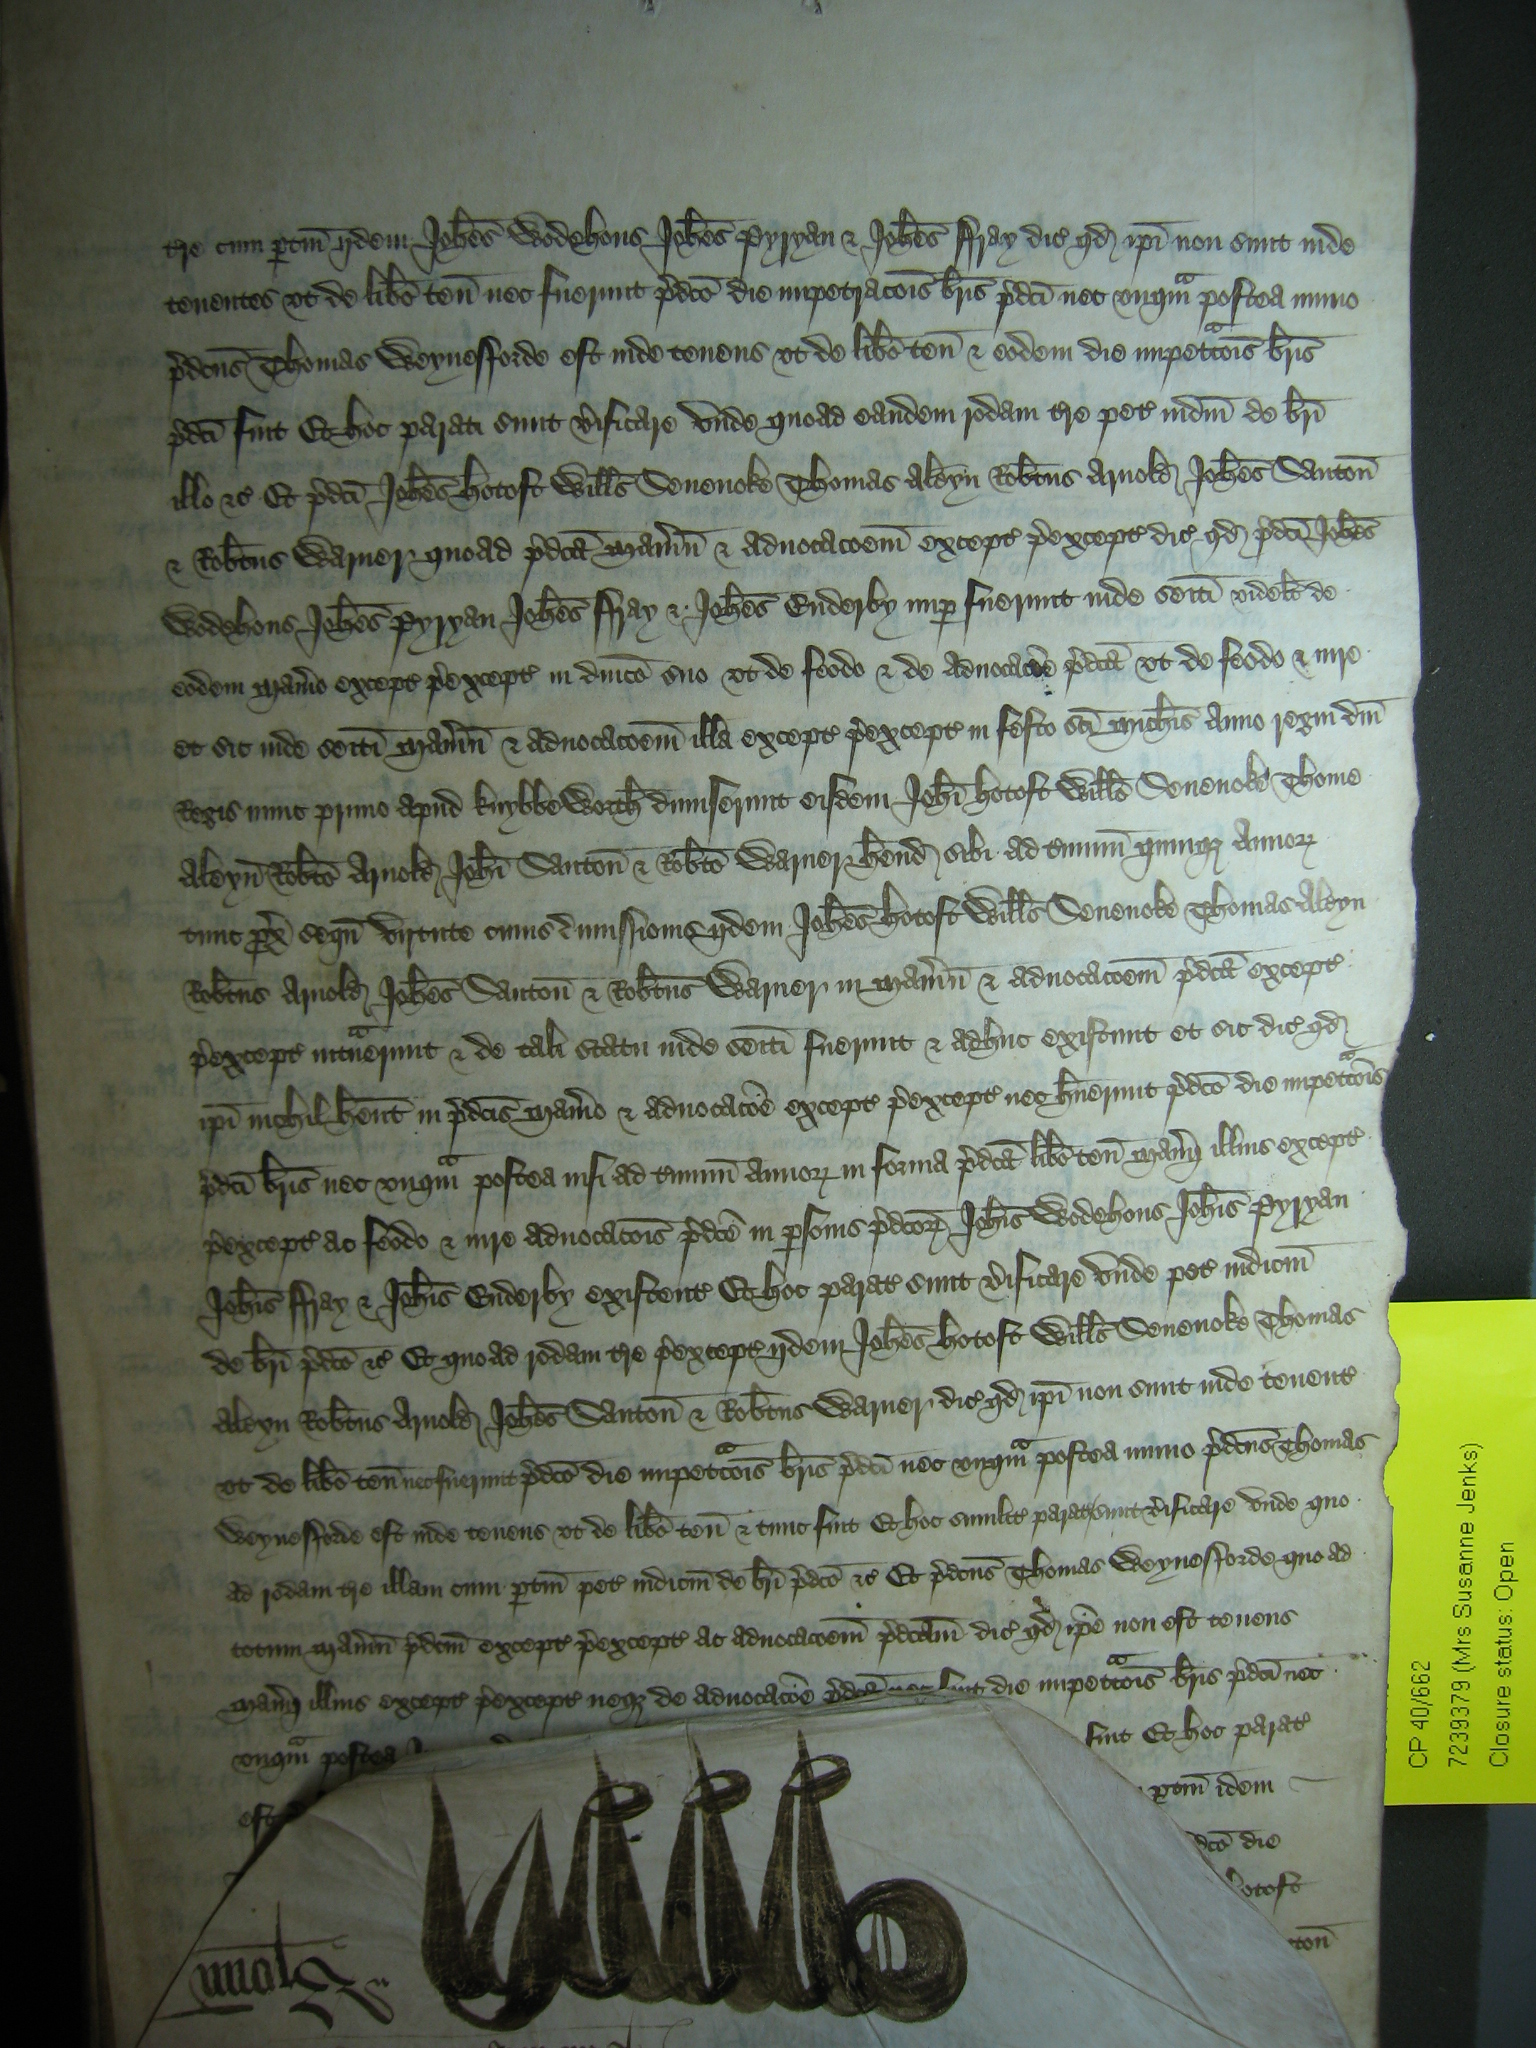 t're cum p'tin' ijdem Joh'es Wodehous Joh'es Pyryan & Joh'es Ffray dic' qd' ip'i non sunt inde
tenentes vt de lib'o ten' nec fuerunt p'dc'o die impetrac'ois br'is p'dc'i nec vnqᵃm postea immo
p'dc'us Thomas Weynesfforde est inde tenens vt de lib'o ten' & eodem die impetᵃc'ois br'is
p'dc'i fuit Et hoc parati sunt v'ificare Vnde quoad eandem rodam t're pet' iudm' de br'i
illo &c' Et p'dc'i Joh'es hotoft Will's Seuenoke Thomas Aleyn Rob'tus Arnold' Joh'es Santon'
& Rob'tus Warner quoad p'dc'a Man'iu' & aduocac'oem except' p'except' dic' qd' p'dc'i Joh'es
Wodehous Joh'es Pyryan Joh'es Ffray & Joh'es Enderby nup' fuerunt inde seiti' videl't de
eodem Man'io except' p'except' in d'nico suo vt de feodo & de aduocac'oe p'dc'a vt de feodo & iure
et sic inde seiti' Man'iu' & aduocac'oem illa except' p'except' in festo sc'i Mich'is Anno regni d'ni
Regis nunc primo apud Knybbeworth' dimiserunt eisdem Joh'i hotoft Will'o Seuenoke Thome
Aleyn Rob'to Arnold' Joh'i Santon' & Rob'to Warner h'end' sibi ad t'minu' quinqz Annor'
tunc p'x' sequ' Virtute cuius dimissionis ijdem Joh'es hotoft Will's Seuenoke Thomas Aleyn
Rob'tus Arnold' Joh'es Santon' & Rob'tus Warner in Man'iu' & aduocac'oem p'dc'a except'
p'except' intᵃuerunt & de tali statu inde seiti' fuerunt & adhuc existunt et sic dic' qd'
ip'i nichil h'ent in p'dc'is Man'io & aduocac'oe except' p'except' nec h'uerunt p'dc'o die impetᵃc'ois
p'dc'i br'is nec vnqᵃm postea nisi ad t'minu' annor' in forma p'dc'a lib'o ten' Man'ij illius except'
p'except' ac feodo & iure aduocac'ois p'dc'e in p'sonis p'dc'or' Joh'is Wodehous Joh'is Pyryan
Joh'is Ffray & Joh'is Enderby existent' Et hoc parat' sunt v'ificare Vnde pet' iudiciu'
de br'i p'dc'o &c' Et quoad rodam t're p'except' ijdem Joh'es hotoft Will's Seuenoke Thomas
Aleyn Rob'tus Arnold' Joh'es Santon' & Rob'tus Warner dic' qd' ip'i non sunt inde tenent'
vt de lib'o ten' nec fuerunt p'dc'o die impetᵃc'ois br'is p'dc'i nec vnqᵃm postea immo p'dc'us Thomas
Weynesfforde est inde tenens vt de lib'o ten' & tunc fuit Et hoc similit' parat' sunt v'ificare Vnde quo
ad rodam t're illam cum p'tin' pet' iudiciu' de br'i p'dc'o &c' Et p'dc'us Thomas Weynesfforde quo ad
totum Man'iu' p'dc'm except' p'except' ac aduocac'oem p'dc'am dic' qd' ip'e non est tenens
Man'ij illius except' p'except' neqz de aduocac'oe p'dc'a nec fuit die impetᵃc'ois br'is p'dc'i nec
vnqᵃm postea fuit Et hoc parat'
est p'tin' idem
p'dc'o die
hotoft
Santon'
CP 40/662
7239379 (Mrs Susanne Jenks)
Closure status: Open